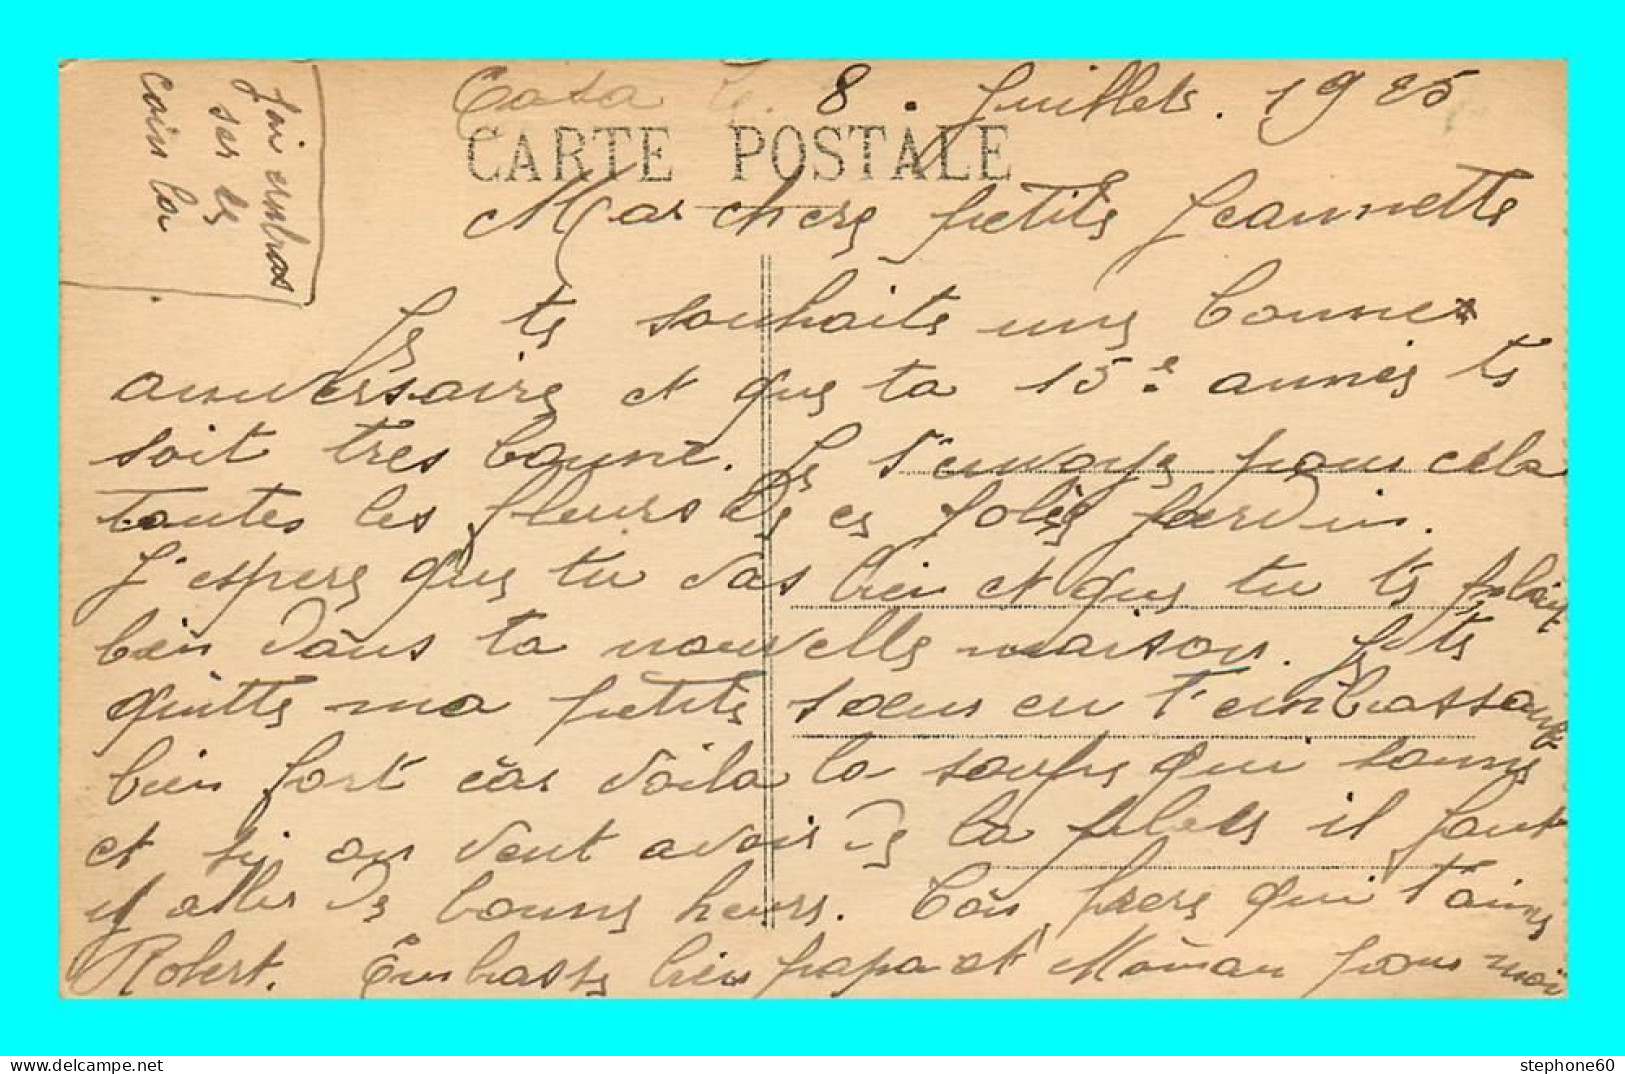 J'ai embras
ser les
coins la
Casa le 8. Juillets. 1925
CARTE POSTALE
Mar chere petite Jeannette
Je te souhaite une bonne
anniversaire et que ta 15e année te
soit tres bonne. Je t'envoye pour cela
toutes les fleurs de ce jolie jardin.
J'espere que tu vas bien et que tu te plait
bien dans ta nouvelle maison. Je te
quitte ma petite sœur en t'embrassant
bien fort car voila la soupe qui sonne
et si on veut avoir de la place il faut
y aller de bonne heure. Ton frere qui t'aime
Robert. Embasse bien papa et Maman pour moi
stephone60